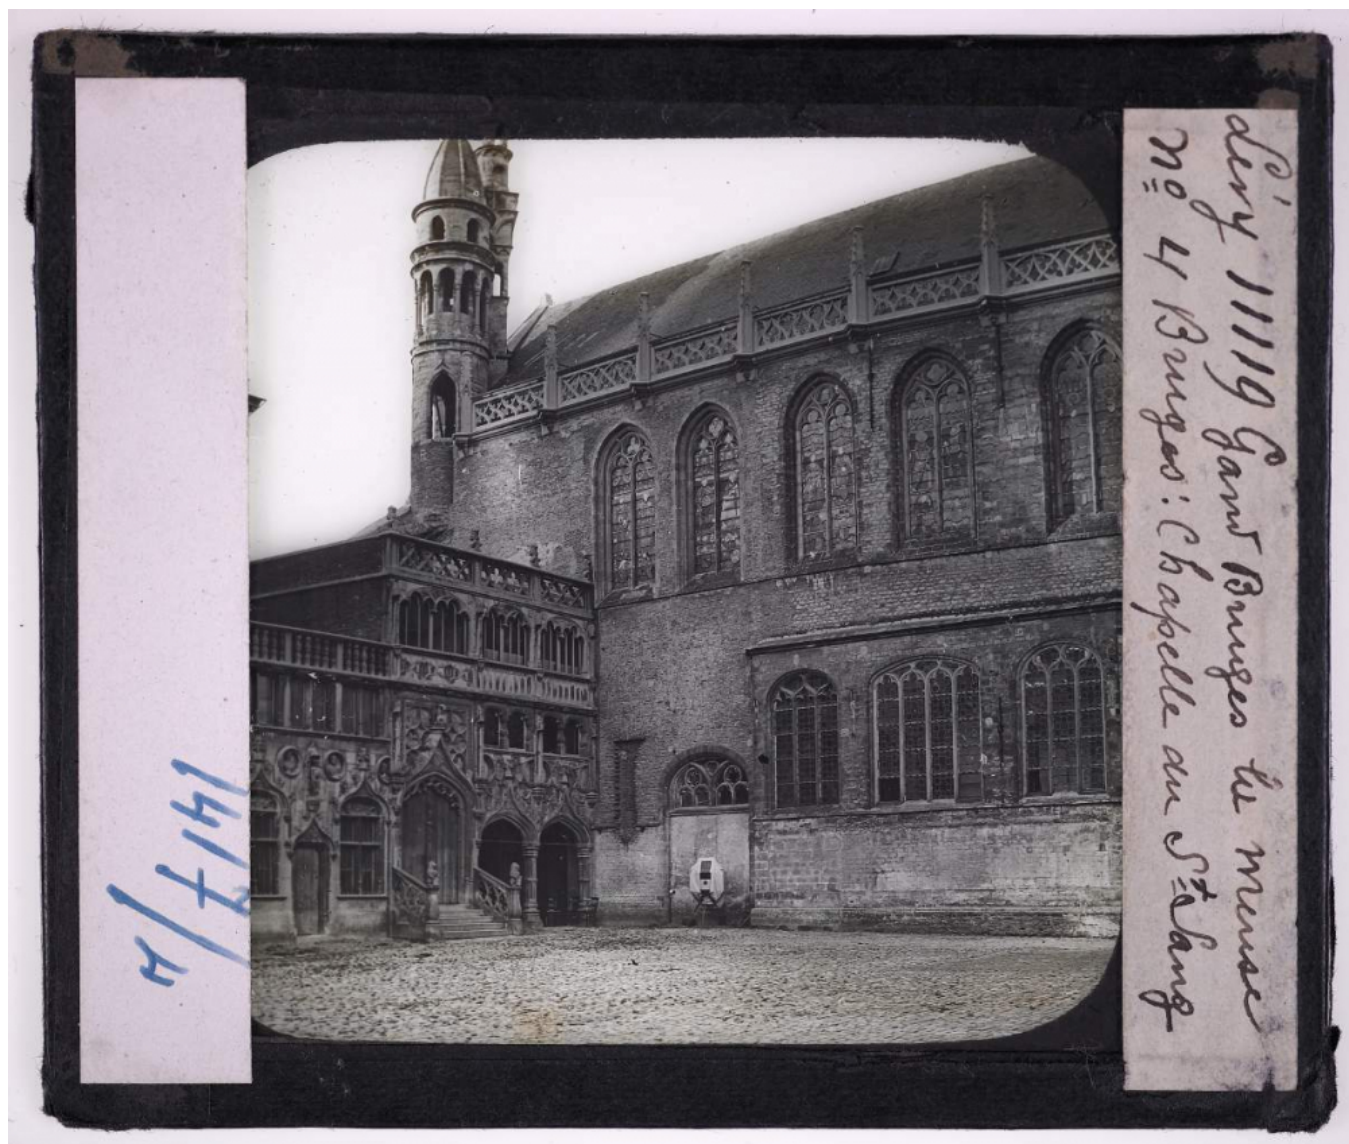 Lévy 11119 Gand Bruges la meuse
No 4 Bruges: Chapelle du St Sang
1417/4